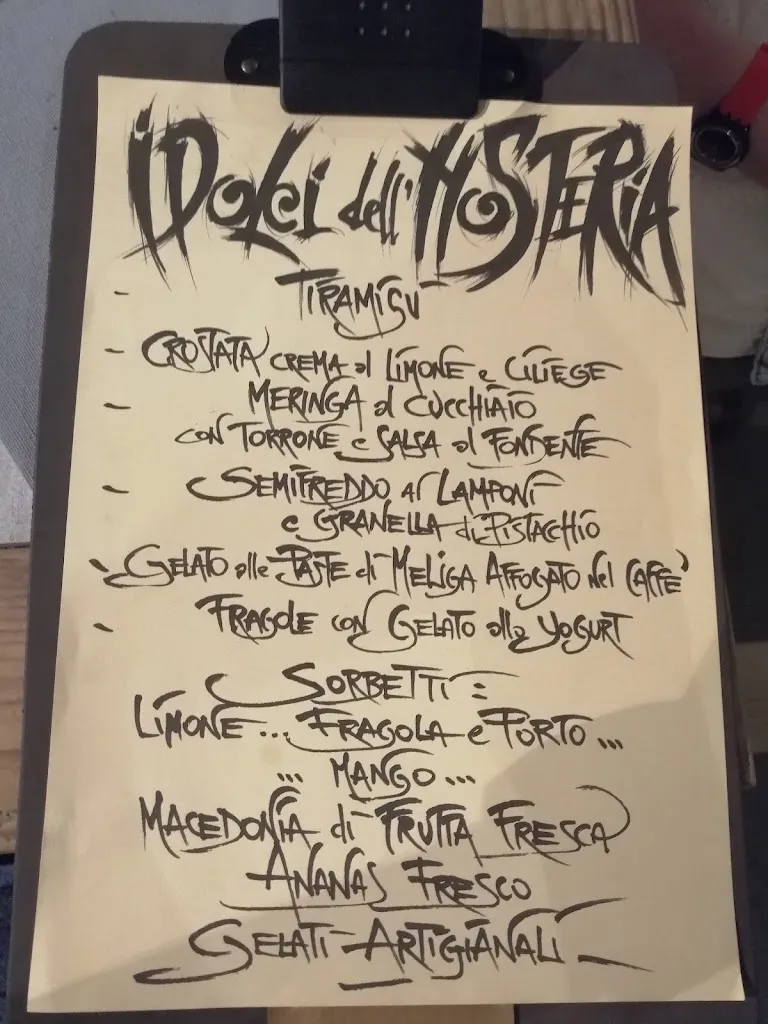 i Dolci dell'Hosteria
- Tiramisù
- Crostata crema al Limone e Ciliege
- Meringa al Cucchiaio
con Torrone e Salsa al Fondente
- Semifreddo ai Lamponi
e Granella di Pistacchio
- Gelato alle Paste di Meliga Affogato nel Caffè
- Fragole con Gelato allo Yogurt
Sorbetti:
Limone... Fragola e Porto...
... Mango ...
Macedonia di Frutta Fresca
Ananas Fresco
Gelati Artigianali